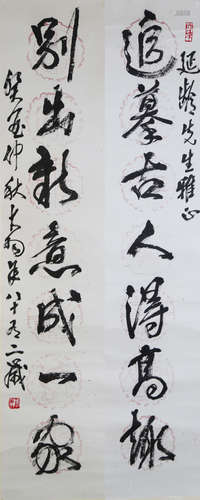 延龄先生雅正
追摹古人得高趣
别出新意成一家
癸亥仲秋大翔年八十有二岁